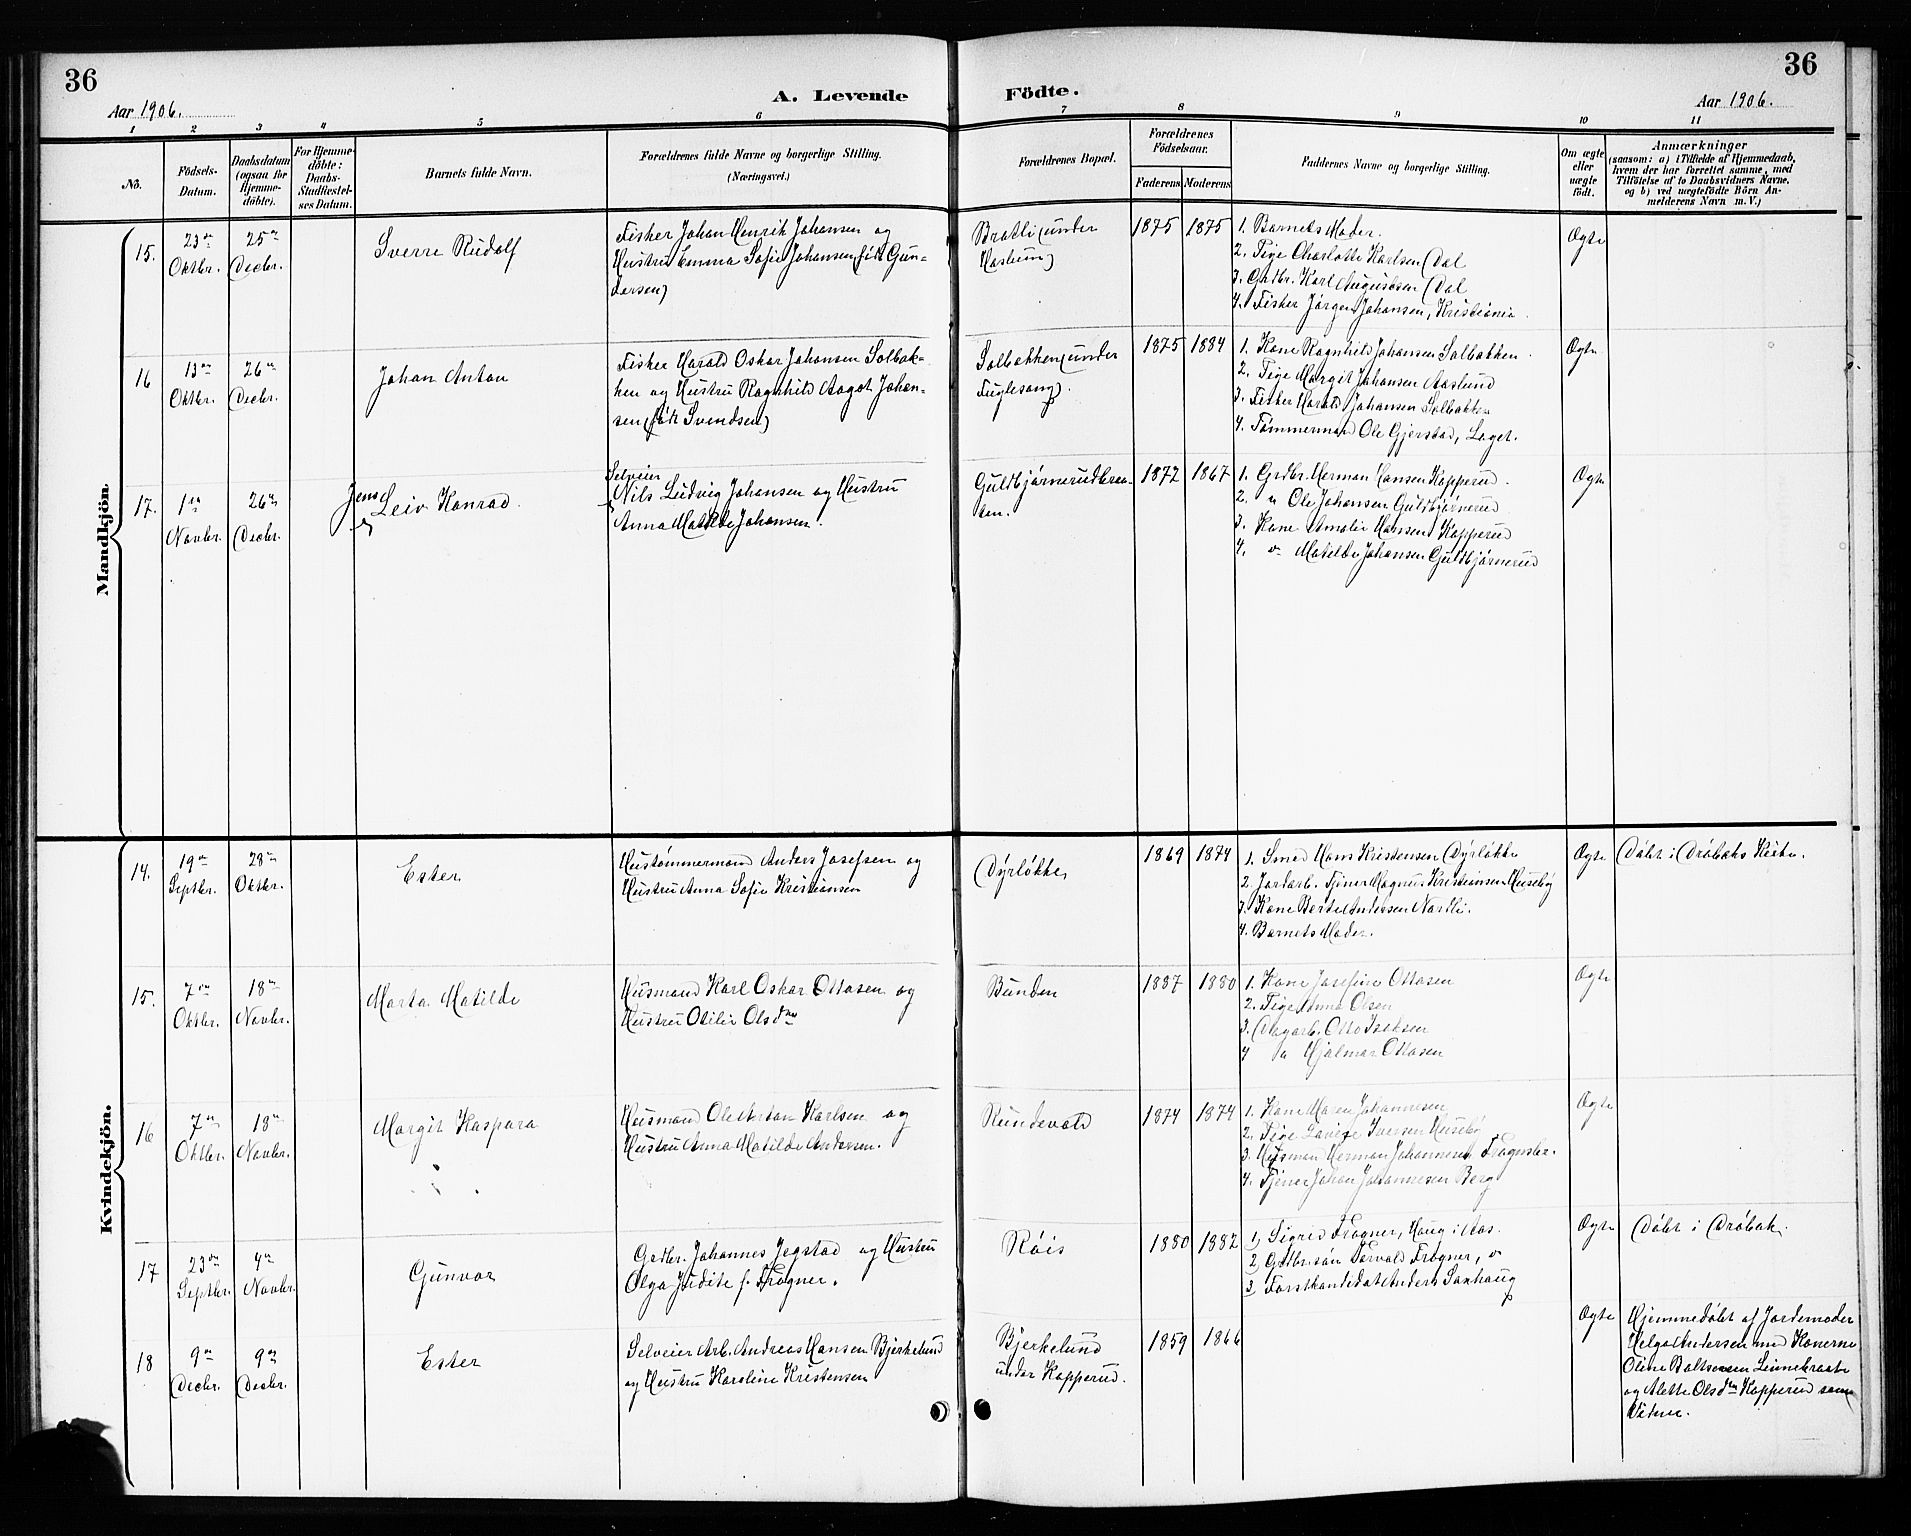 36
36
Aar 1906.
A. Levende Födte.
Aar 1906.
1 2 3 4 5 6 7 8 9 10 11
No.
Födsels-
Datum.
Daabsdatum
(ogsaa for
Hjemme-
döbte).
For Hjemme-
döbte:
Daabs-
Stadfæstel-
ses Datum.
Barnets fulde Navn.
Forældrenes fulde Navne og borgerlige Stilling.
(Næringsvei.)
Forældrenes Bopæl.
Forældrenes
Födselsaar.
Faderens
Moderens
Faddernes Navne og borgerlige Stilling.
Om ægte
eller
uægte
födt.
Anmærkninger
(saasom: a) i Tilfælde af Hjemmedaab,
hvem der har forrettet samme, med
Tilföielse af to Daabsvidners Navne,
og b) ved uegtefödte Börn An-
melderens Navn m. V.)
Mandkjön
15.
23de
Oktbr.
25de
Decbr.
Sverre Rudolf
Fisker Johan Henrik Johansen og
Hustru Emma Sofie Johansen (født Gun-
dersen)
Bratli (under
Haslum)
1875
1875
1. Barnets Moder.
2. Pige Charlotte Karlsen (Dal
3. Grdbr. Karl Augustsen (Dal
4. Fisker Jørgen Johansen, Kristiania.
Ægte
16
13de
Oktbr.
26de
Decbr.
Johan Anton
Fisker Harald Oskar Johansen Solbak-
ken og Hustru Ragnhild Aagot Johan-
sen (født Svendsen)
Solbakken (under
Fuglesang).
1875
1884
1. Kone Ragnhild Johansen Solbakken.
2. Pige Margit Johansen Aaslund
3. Fisker Harald Johansen Solbakken
4. Tømmermand Ole Gjerstad, Laget.
Ægte
17.
1ste
Novbr.
26de
Decbr.
Jens
Leiv Konrad.
Selveier
Nils Ludvig Johansen og Hustru
Anna Matilde Johansen.
Guldbjørnerud
1872
1867
1. Grdbr. Herman Hansen Kopperud.
2. " Ole Johansen Guldbjørnerud
3. Kone Amalie Hansen Kopperud
4. " Matilde Johansen Guldbjørnerud
Ægte
Kvindekjön.
14.
19de
Septbr.
28de
Oktbr.
Ester
Hustømmermand Anders Josefsen og
Hustru Anna Sofie Kristiansen
Dyrløkke
1869
1874
1. Smed Hans Kristensen Dyrløkke
2. Jordarb. Tjener Magnus Kristiansen Huseby
3. Kone Berte Andersen Nordli.
4. Barnets Moder.
Ægte
Døbt i Drøbaks Kirke.
15.
7de
Oktbr.
18de
Novbr.
Marta Matilde
Husmand Karl Oskar Ottosen og
Hustru Otilie Olsdtr
Bunden
1887
1880
1. Kone Josefine Ottosen
2. Pige Anna Olsen
3. Dagarb. Otto Isaksen
4 " Hjalmar Ottosen
Ægte
16
7de
Oktbr.
18de
Novbr.
Margit Kaspara
Husmand Ole Anton Karlsen og
Hustru Anna Matilde Andersen.
Rundevold
1874
1874
1. Kone Maren Johannesen
2. Pige Lovise Iversen Huseby
3. Husmand Herman Johannesen,
4. Tjener Johan Johannesen Berg
Ægte
17
23de
Septbr.
4de
Novbr.
Gunvor
Grdbr. Johannes Jegstad og Hustru
Olga Judite f. Frogner.
Røis
1880
1882
1) Sigrid Frogner, Haug i Aas.
2) Grdbr.søn Torvald Frogner, "
3) Forstkandidat Anders Saxhaug
Ægte
Døbt i Drøbak.
18
9de
Decbr.
9de
Decbr.
Ester
Selveier Arb. Andreas Hansen Bjerkelund
og Hustru Karoline Kristensen
Bjerkelund
under Kopperud.
1859
1866
Ægte
Hjemmedøbt af Jordemoder
Helga Andersen med Konerne
Oline Baltsersen
og Alette Olsdtr Kopperud som
Vidner.